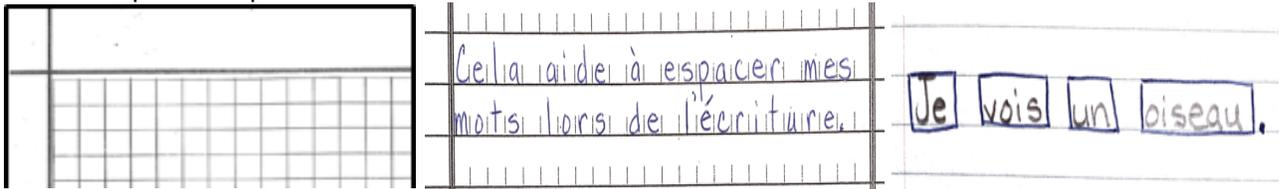 Cela aide à espacer mes
mots lors de l'écriture.
Je vois un oiseau.